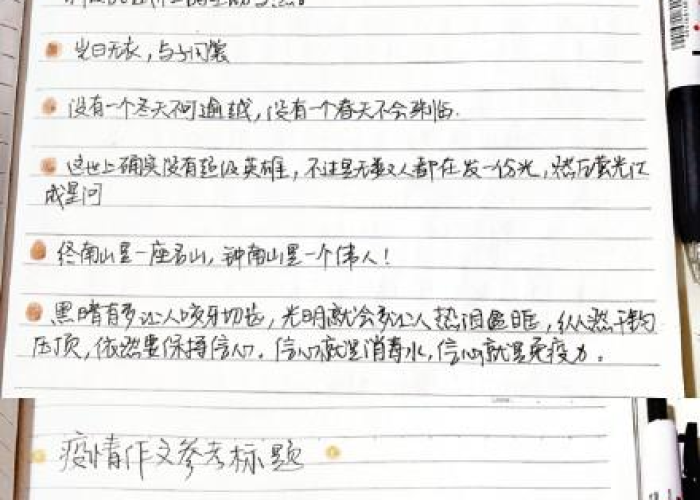 岂曰无衣，与子同裳
没有一个冬天不可逾越，没有一个春天不会来临.
这世上确实没有超级英雄，不过是无数人都在发一份光，然后萤光汇
成星河
终南山是一座名山，钟南山是一个伟人！
黑暗有多让人咬牙切齿，光明就会多让人热泪盈眶，纵然千钧
压顶，依然要保持信心。信心就是消毒水，信心就是免疫力。
疫情作文参考标题